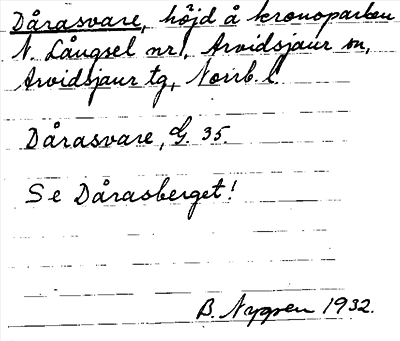 Dårasvare, höjd å kronoparken
N. Långsel nr 1, Arvidsjaur sn,
Arvidsjaur tg, Norrb. l.
Dårasvare, G. 35.
Se Dårasberget!
B. Nygren 1932.